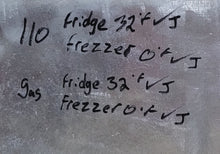 110 fridge 32°f ✓ J
frezzer 0°f ✓ J
gas fridge 32°f ✓ J
frezzer 0°f ✓ J